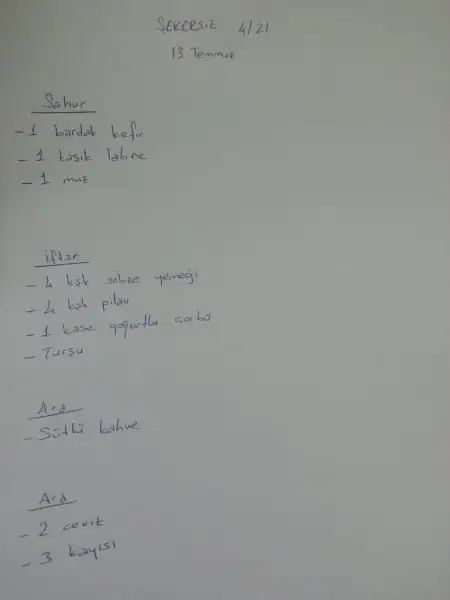 ŞEKERSİZ 4/21
13 Temmuz
Sahur
- 1 bardak kefir
- 1 kaşık labne
- 1 muz
İftar
- 4 kşk sebze yemeği
- 4 kşk pilav
- 1 kase yoğurtlu çorba
- Turşu
Ara
- Sütlü kahve
Ara
- 2 ceviz
- 3 kayısı